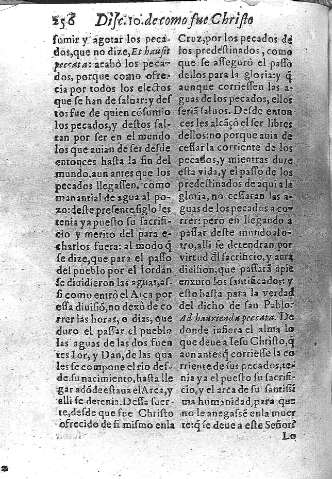 258 Disc. 10. de como fue Christo
sumir y agotar los peca-
dos, que no dize, Et hausit
peccata: acabò los peca-
dos, porque como ofre-
cia por todos los electos
que se han de saluar: y des-
tos fue de quien cõsumio
los pecados, y destos sal-
tan por ser en el mundo
los que auian de ser desde
entonces hasta la fin del
mundo, aun antes que los
pecados llegassen, como
manantial de agua al po-
zo: deste presente siglo les
tenia ya puesto su sacrifi-
cio y merito del para e-
charlos fuera: al modo q̃
se dize, que para el passo
del pueblo por el Iordan
se diuidieron las aguas, assi
si como entrò el Arca por
esta diuisiõ, no dexò de co
rrer las horas, o dias, que
duro el passar el pueblo
las aguas de las dos fuen
tes Ior, y Dan, de las qua
les se compone el rio des-
de su nacimiento, hasta lle
gar adõde estaua el Arca, y
alli se detenia. Dessa suer-
te, desde que fue Christo
ofrecido de si mismo en la
Cruz, por los pecados de
los predestinados, como
que se assegurò el passo
dellos para la gloria: y q̃
aunque corriessen las a-
guas de los pecados, ellos
serã saluos. Desde enton-
ces les alcãçò el ser libres
dellos: no porque auia de
cessar la corriente de los
pecados, y mientras dure
esta vida, y el passo de los
predestinados de aqui a la
gloria, no cessaràn las a-
guas de los pecados a co-
rrer: pero en llegando a
passar deste mundo al o-
tro, alli se detendran por
virtud del sacrificio, y aurà
diuision, que passarà
enxuto los santificados: y
esto basta para la verdad
del dicho de san Pablo:
Ad haurienda peccata. De
donde infiera el alma lo
que deue a Iesu Christo, q̃
aun antes q̃ corriesse la co
rriente de sus pecados, te-
nia ya el puesto su sacrifi-
cio, y el arca de su santissi
ma humanidad, para que
no le anegasse en la muer
te: q̃ se deue a este Señor
Lo